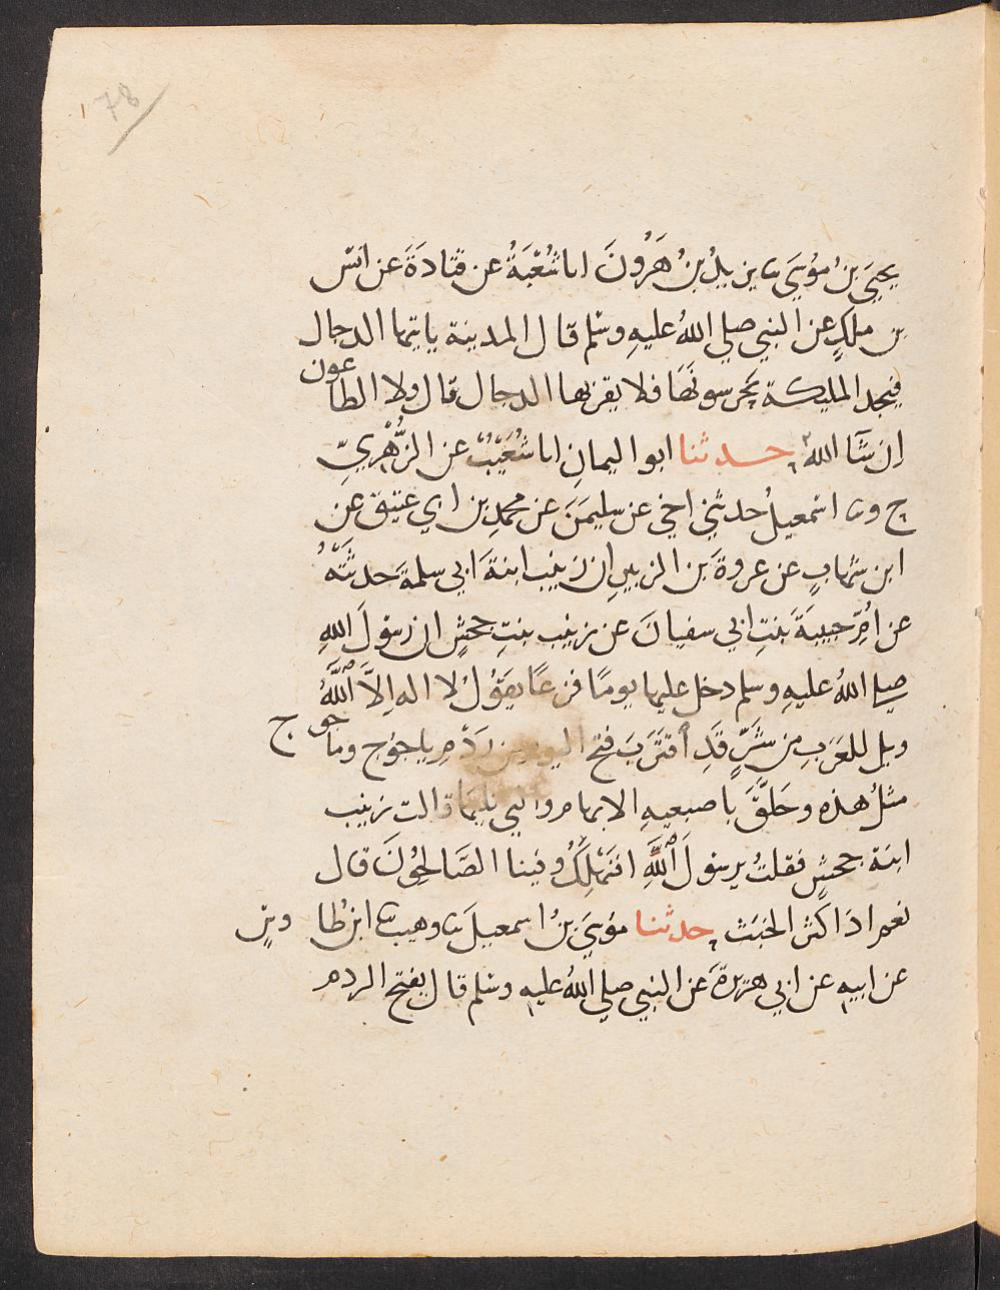 78
يحيَى بنُ مُوسَى نا يزيدُ بنُ هَرُونَ انا شُعْبَةُ عن قتَادَةَ عن انس
بن ملكٍ عن النبي صلى اللهُ عليهِ وسلم قال المدينة ياتيها الدجال
فيجد المليكة يحرسونَهَا فلا يقربها الدجال قال ولا الطاعون
ان شَآ اللهُ حدثنا ابو اليمانِ انا شُعَيْبٌ عن الزُّهْرِيِّ
ح ونا اسْمعيلُ حدثني اخي عن سليمَنَ عن محمدِ بن ابي عتيق عن
ابن شهابٍ عن عروةَ بن الزبيرِ ان زَيْنبَ ابنةَ ابي سلمةَ حدثَتْهُ
عن اُمِّ حبيبةَ بنتِ ابي سفيانَ عن زينب بنتِ جحشٍ ان رسُولَ اللهِ
صلى اللهُ عليهِ وسلم دخل عليها يومًا فزعًا يقُولُ لا اله اِلاَّ اللَّهُ
ويل للعَرَبِ من شَرٍّ قَدِ اقتَرَبَ فتح اليوم من رَدْمِ ياجوُج وماجوج
مثلُ هذه وحَلَّقَ باصبعيهِ الابهام والتي تليهَا قالت زينب
ابنة جحشٍ فقلتُ يرسُولَ اللَّهِ افنَهْلِكُ وفينا الصَّالحُونَ قال
نعم اذَا كثر الخبَث حدثنا مُوسَى بنُ اسمعيلَ نا وهيب نا ابنُ طاوسٍ
عن ابيهِ عن ابي هريرةَ عن النبي صلى اللهُ عليه وسلم قال يفتح الردم